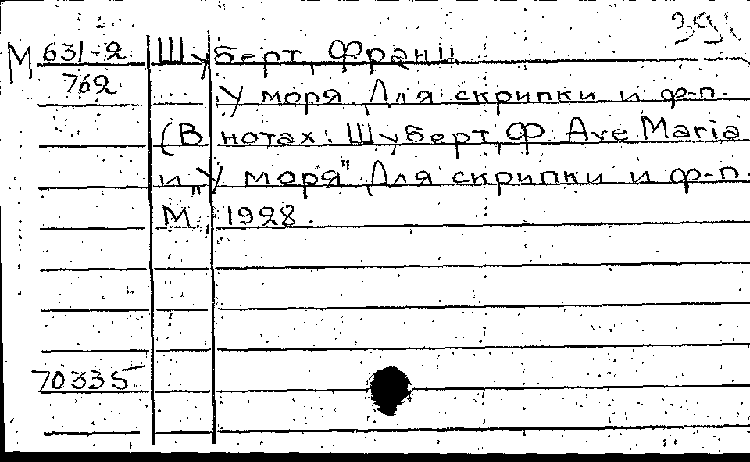 391
М 631-2 Шуберт, Франц
762 У моря. Для скрипки и ф-п.
(В нотах: Шуберт, Ф. Ave Maria
и "У моря" Для скрипки и ф-п.
М. 1928.
70335